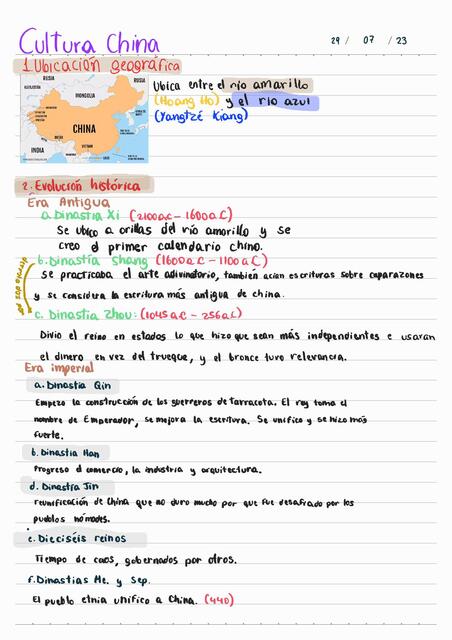 Cultura China
29 / 07 / 23
1. Ubicación geográfica
RUSIA
RUSIA
MONGOLIA
CHINA
INDIA
VIETNAM
Ubica entre el río amarillo
(Hoang Ho) y el río azul
(Yangtzé Kiang)
2. Evolución histórica
Era Antigua
a. Dinastía Xi (2100a.C - 1600a.C)
Se ubico a orillas del río amarillo y se
creo el primer calendario chino.
b. Dinastía Shang (1600a.C - 1100a.C)
se practicaba el arte adivinatorio, también acian escrituras sobre caparazones
y se considera la escritura más antigua de china.
c. Dinastía Zhou: (1045a.C - 256a.C)
Divio el reino en estados lo que hizo que sean más independientes e usaran
el dinero en vez del trueque, y el bronce tuvo relevancia.
Era imperial
a. Dinastía Qin
Empezo la construcción de los guerreros de tarracota. El rey toma el
nombre de Emperador, se mejora la escritura. Se unifico y se hizo más
fuerte.
b. Dinastía Han
Progreso el comercio, la industria y arquitectura.
d. Dinastía Jin
reunificación de China que no duro mucho por que fue desafiado por los
pueblos nómades.
e. Dieciséis reinos
Tiempo de caos, gobernados por otros.
f. Dinastías Me. y Sep.
El pueblo etnia unifico a China. (440)